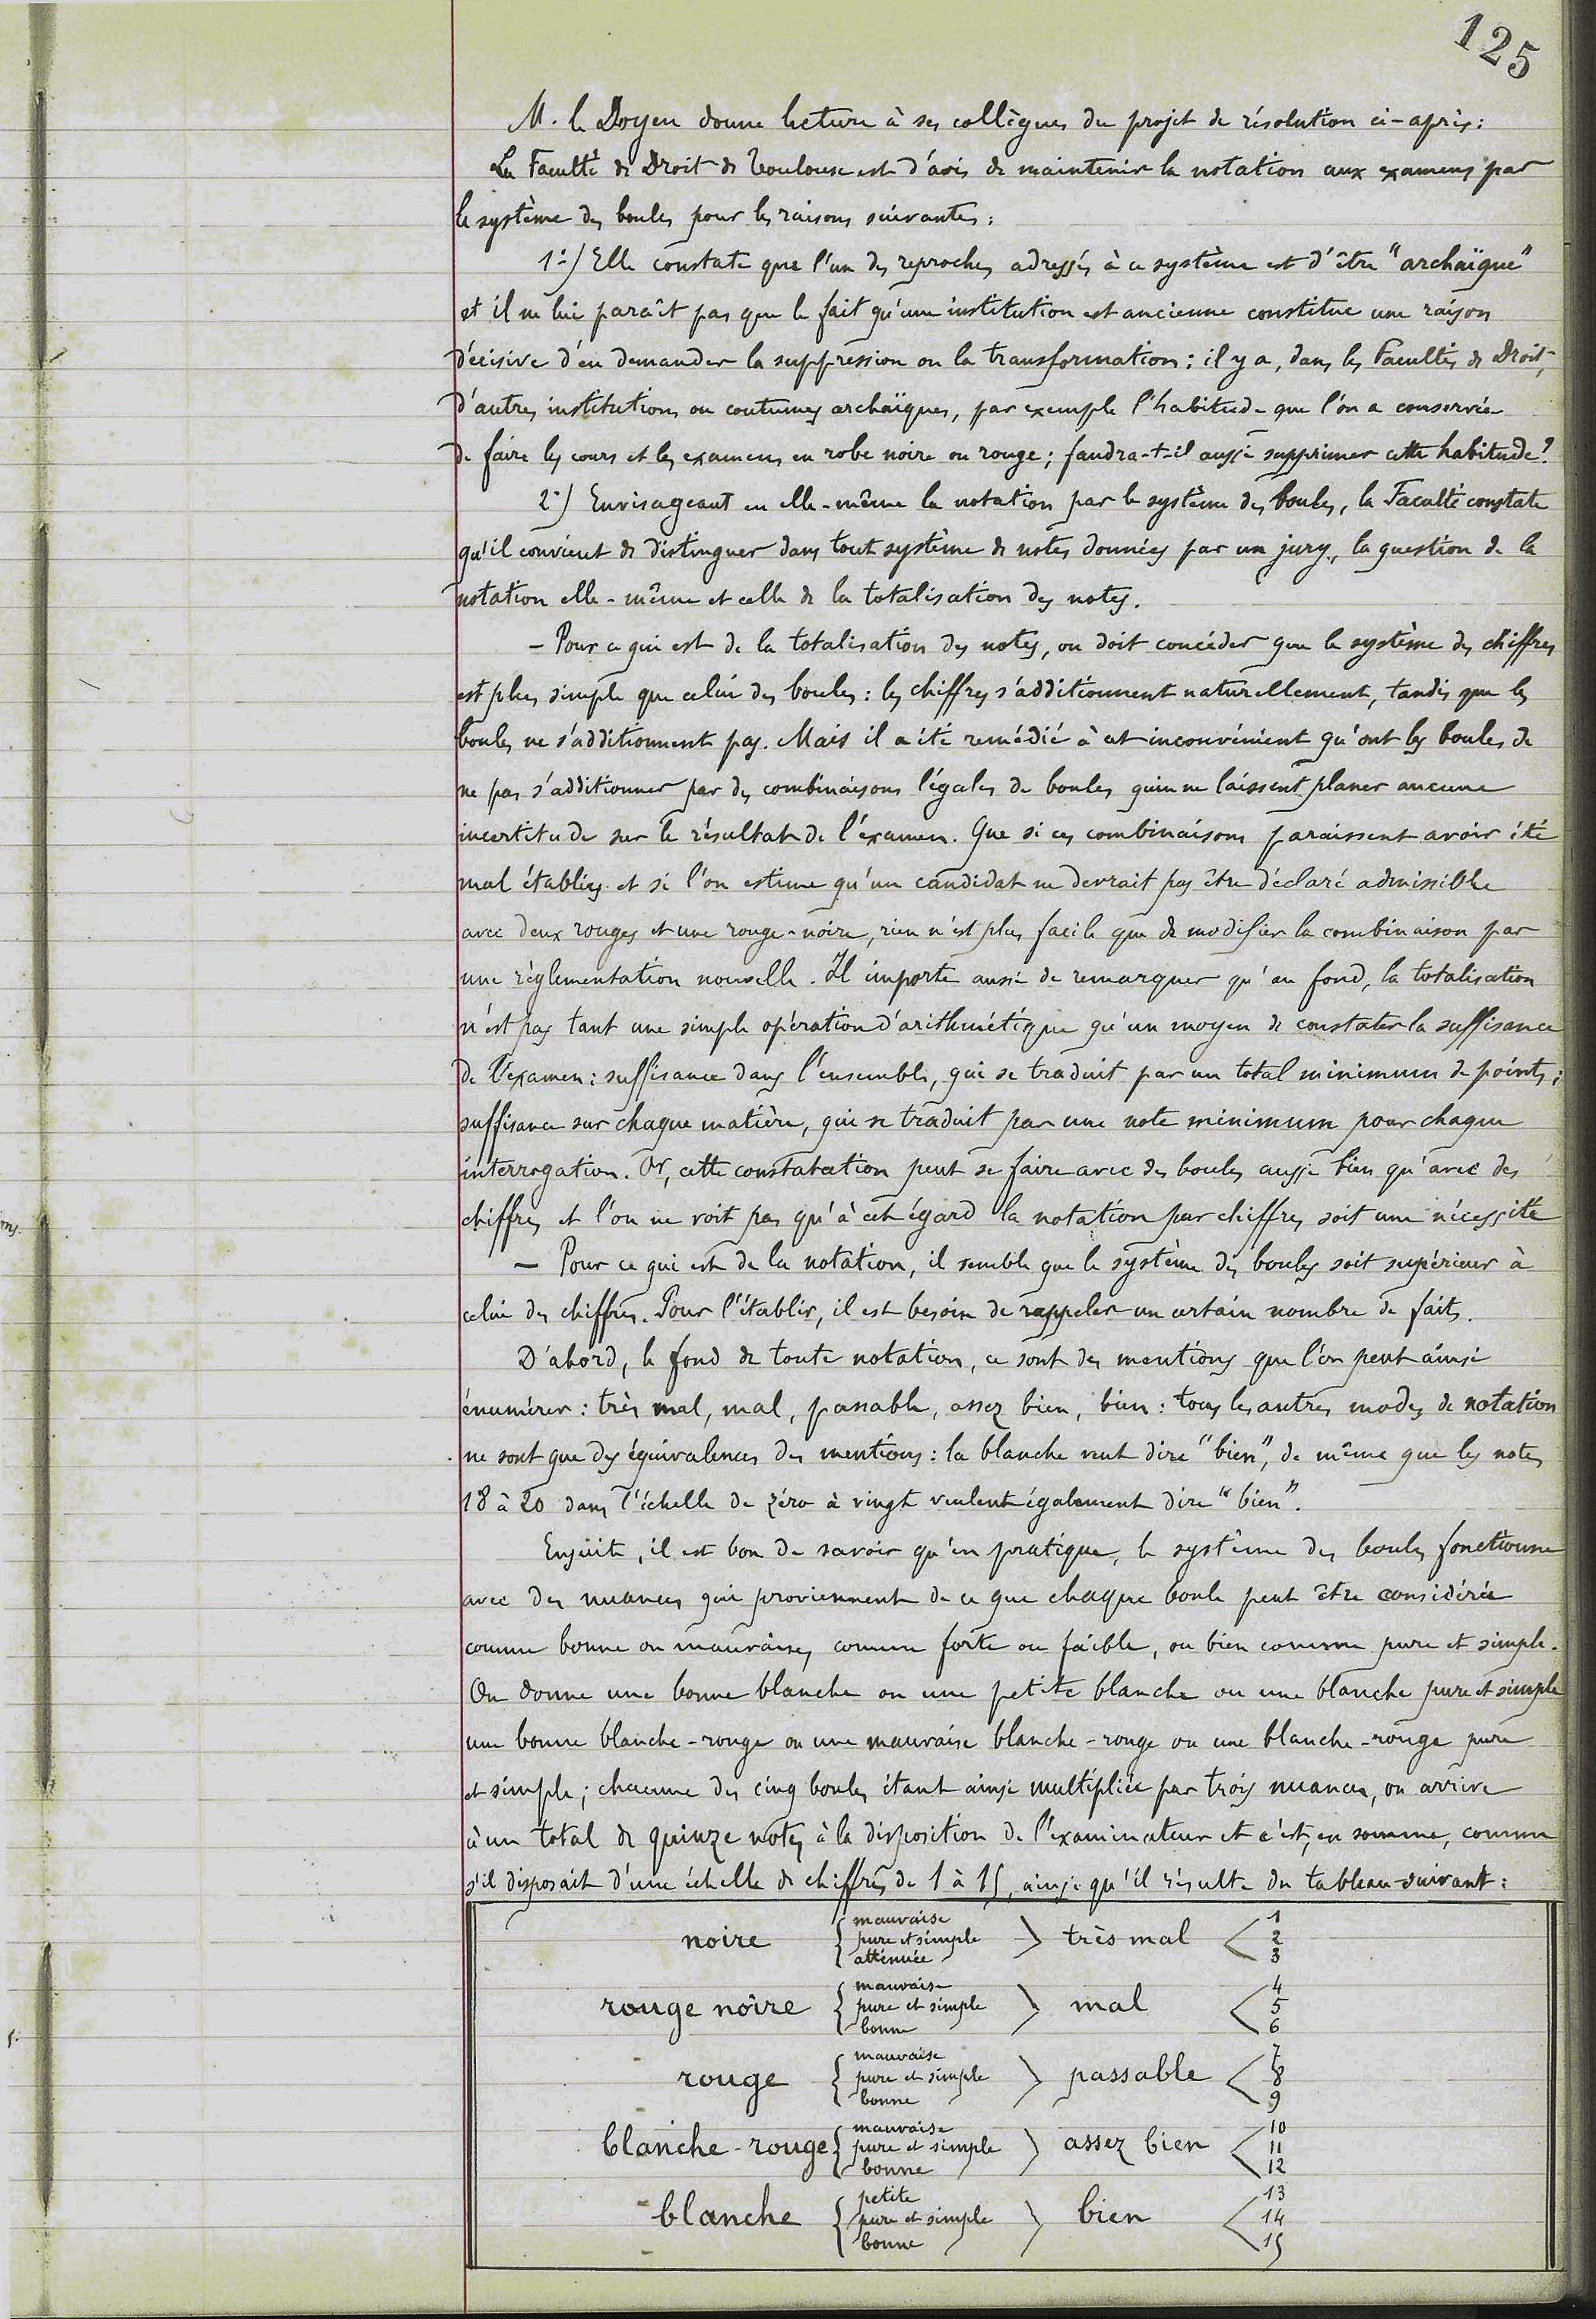 125
M. le Doyen donne lecture à ses collègues du projet de résolution ci-après :
La Faculté de Droit de Toulouse est d'avis de maintenir la notation aux examens par
le système des boules pour les raisons suivantes :
1º/ Elle constate que l'un des reproches adressés à ce système est d'être "archaïque"
et il ne lui paraît pas que le fait qu'une institution est ancienne constitue une raison
décisive d'en demander la suppression ou la transformation : il y a, dans les Facultés de Droit,
d'autres institutions ou coutumes archaïques, par exemple l'habitude que l'on a conservée
de faire les cours et les examens en robe noire ou rouge ; faudra-t-il aussi supprimer cette habitude ?
2º/ Envisageant en elle-même la notation par le système des boules, la Faculté constate
qu'il convient de distinguer dans tout système de notes données par un jury, la question de la
notation elle-même et celle de la totalisation des notes.
– Pour ce qui est de la totalisation des notes, on doit concéder que le système des chiffres
est plus simple que celui des boules : les chiffres s'additionnent naturellement, tandis que les
boules ne s'additionnent pas. Mais il a été remédié à cet inconvénient qu'ont les boules de
ne pas s'additionner par des combinaisons légales de boules qui ne laissent planer aucune
incertitude sur le résultat de l'examen. Que si ces combinaisons paraissent avoir été
mal établies et si l'on estime qu'un candidat ne devrait pas être déclaré admissible
avec deux rouges et une rouge-noire, rien n'est plus facile que de modifier la combinaison par
une règlementation nouvelle. Il importe aussi de remarquer qu'au fond, la totalisation
n'est pas tant une simple opération d'arithmétique qu'un moyen de constater la suffisance
de l'examen : suffisance dans l'ensemble, qui se traduit par un total minimum de points ;
suffisance sur chaque matière, qui se traduit par une note minimum pour chaque
interrogation. Or, cette constatation peut se faire avec des boules aussi bien qu'avec des
chiffres et l'on ne voit pas qu'à cet égard la notation par chiffres soit une nécessité
– Pour ce qui est de la notation, il semble que le système des boules soit supérieur à
celui des chiffres. Pour l'établir, il est besoin de rappeler un certain nombre de faits.
D'abord, le fond de toute notation, ce sont des mentions que l'on peut ainsi
énumérer : très mal, mal, passable, assez bien, bien : tous les autres modes de notation
ne sont que des équivalences des mentions : la blanche veut dire "bien", de même que les notes
18 à 20 dans l'échelle de zéro à vingt veulent également dire "bien".
Ensuite, il est bon de savoir qu'en pratique, le système des boules fonctionne
avec des nuances qui proviennent de ce que chaque boule peut être considérée
comme bonne ou mauvaise, comme forte ou faible, ou bien comme pure et simple.
On donne une bonne blanche ou une petite blanche ou une blanche pure et simple
une bonne blanche-rouge ou une mauvaise blanche-rouge ou une blanche-rouge pure
et simple ; chacune des cinq boules étant ainsi multipliée par trois nuances, on arrive
à un total de quinze notes à la disposition de l'examinateur et c'est, en somme, comme
s'il disposait d'une échelle de chiffres de 1 à 15, ainsi qu'il résulte du tableau suivant :
noire { mauvaise pure et simple atténuée > très mal < 1 2 3
rouge noire { mauvaise pure et simple bonne > mal < 4 5 6
rouge { mauvaise pure et simple bonne > passable < 7 8 9
blanche-rouge { mauvaise pure et simple bonne > assez bien < 10 11 12
blanche { petite pure et simple bonne > bien < 13 14 15